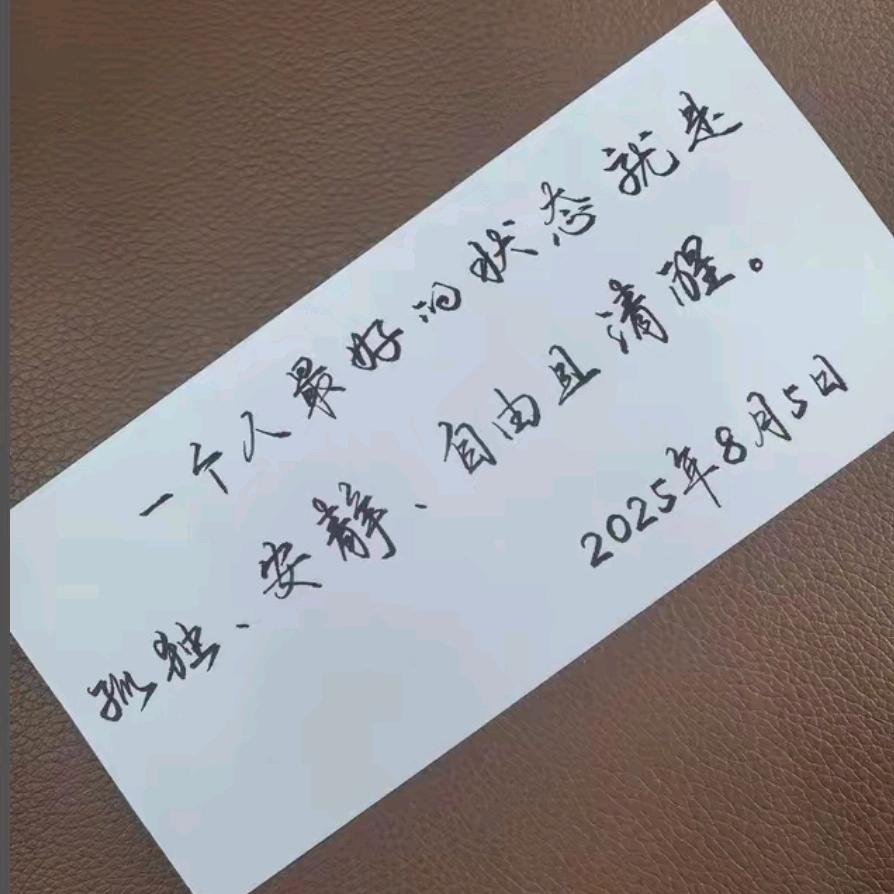 一个人最好的状态就是
孤独、安静、自由且清醒。
2025年8月5日